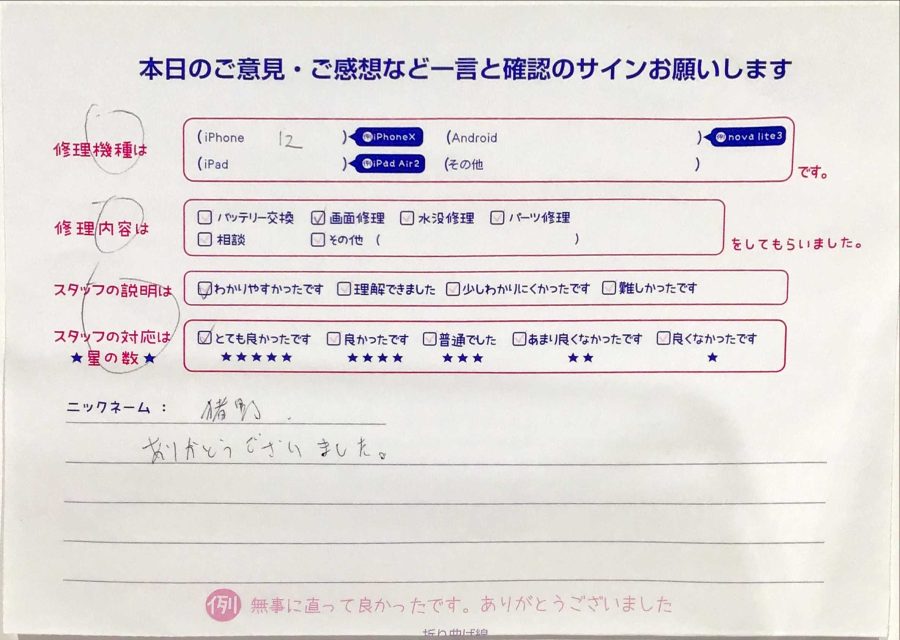 本日のご意見・ご感想など一言と確認のサインお願いします
修理機種は (iPhone 12 ) 例iPhoneX (Android ) 例nova lite3
(iPad ) 例iPad Air2 (その他 ) です。
修理内容は バッテリー交換 画面修理 水没修理 パーツ修理
相談 その他 ( ) をしてもらいました。
スタッフの説明は わかりやすかったです 理解できました 少しわかりにくかったです 難しかったです
スタッフの対応は とても良かったです 良かったです 普通でした あまり良くなかったです 良くなかったです
★星の数★ ★★★★★ ★★★★ ★★★ ★★ ★
ニックネーム： 猪野
ありがとうございました。
例 無事に直って良かったです。ありがとうございました
折り曲げ線